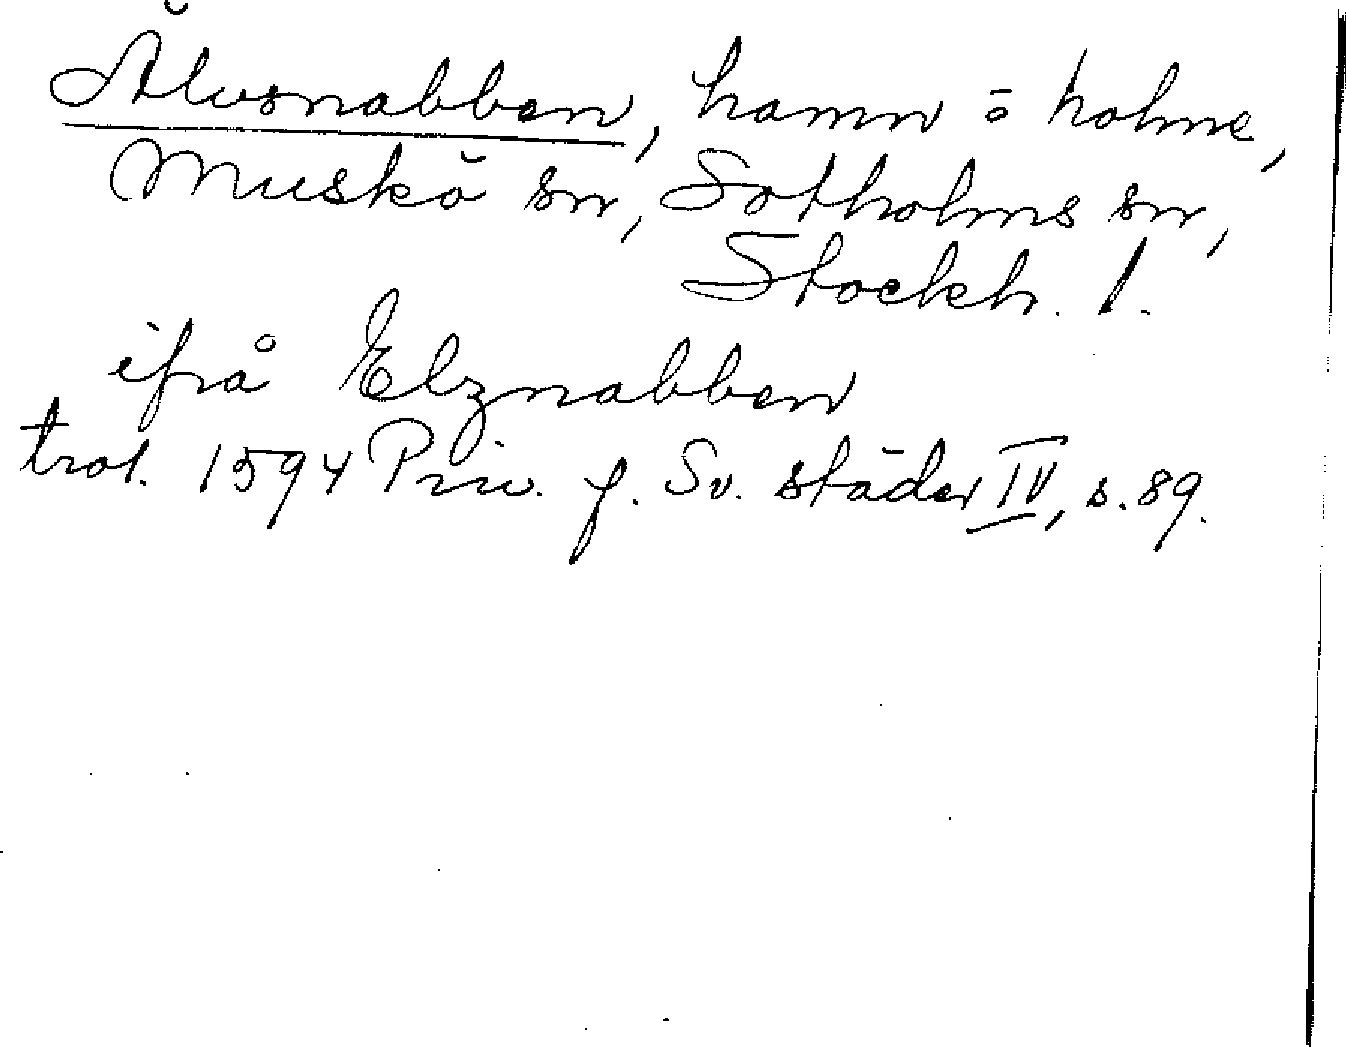 Älvsnabben, hamn o holme,
Muskö sn, Sotholms sn,
Stockh. l.
ifrå Elznabben
trol. 1594 Priv. f. Sv. städer IV, s. 89.